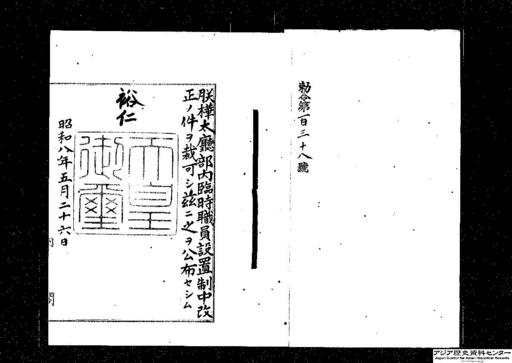 勅令第百三十八號
朕樺太廳部內臨時職員設置制中改
正ノ件ヲ裁可シ茲ニ之ヲ公布セシム
裕仁
天皇御璽
昭和八年五月二十六日
アジア歴史資料センター
Japan Center for Asian Historical Records